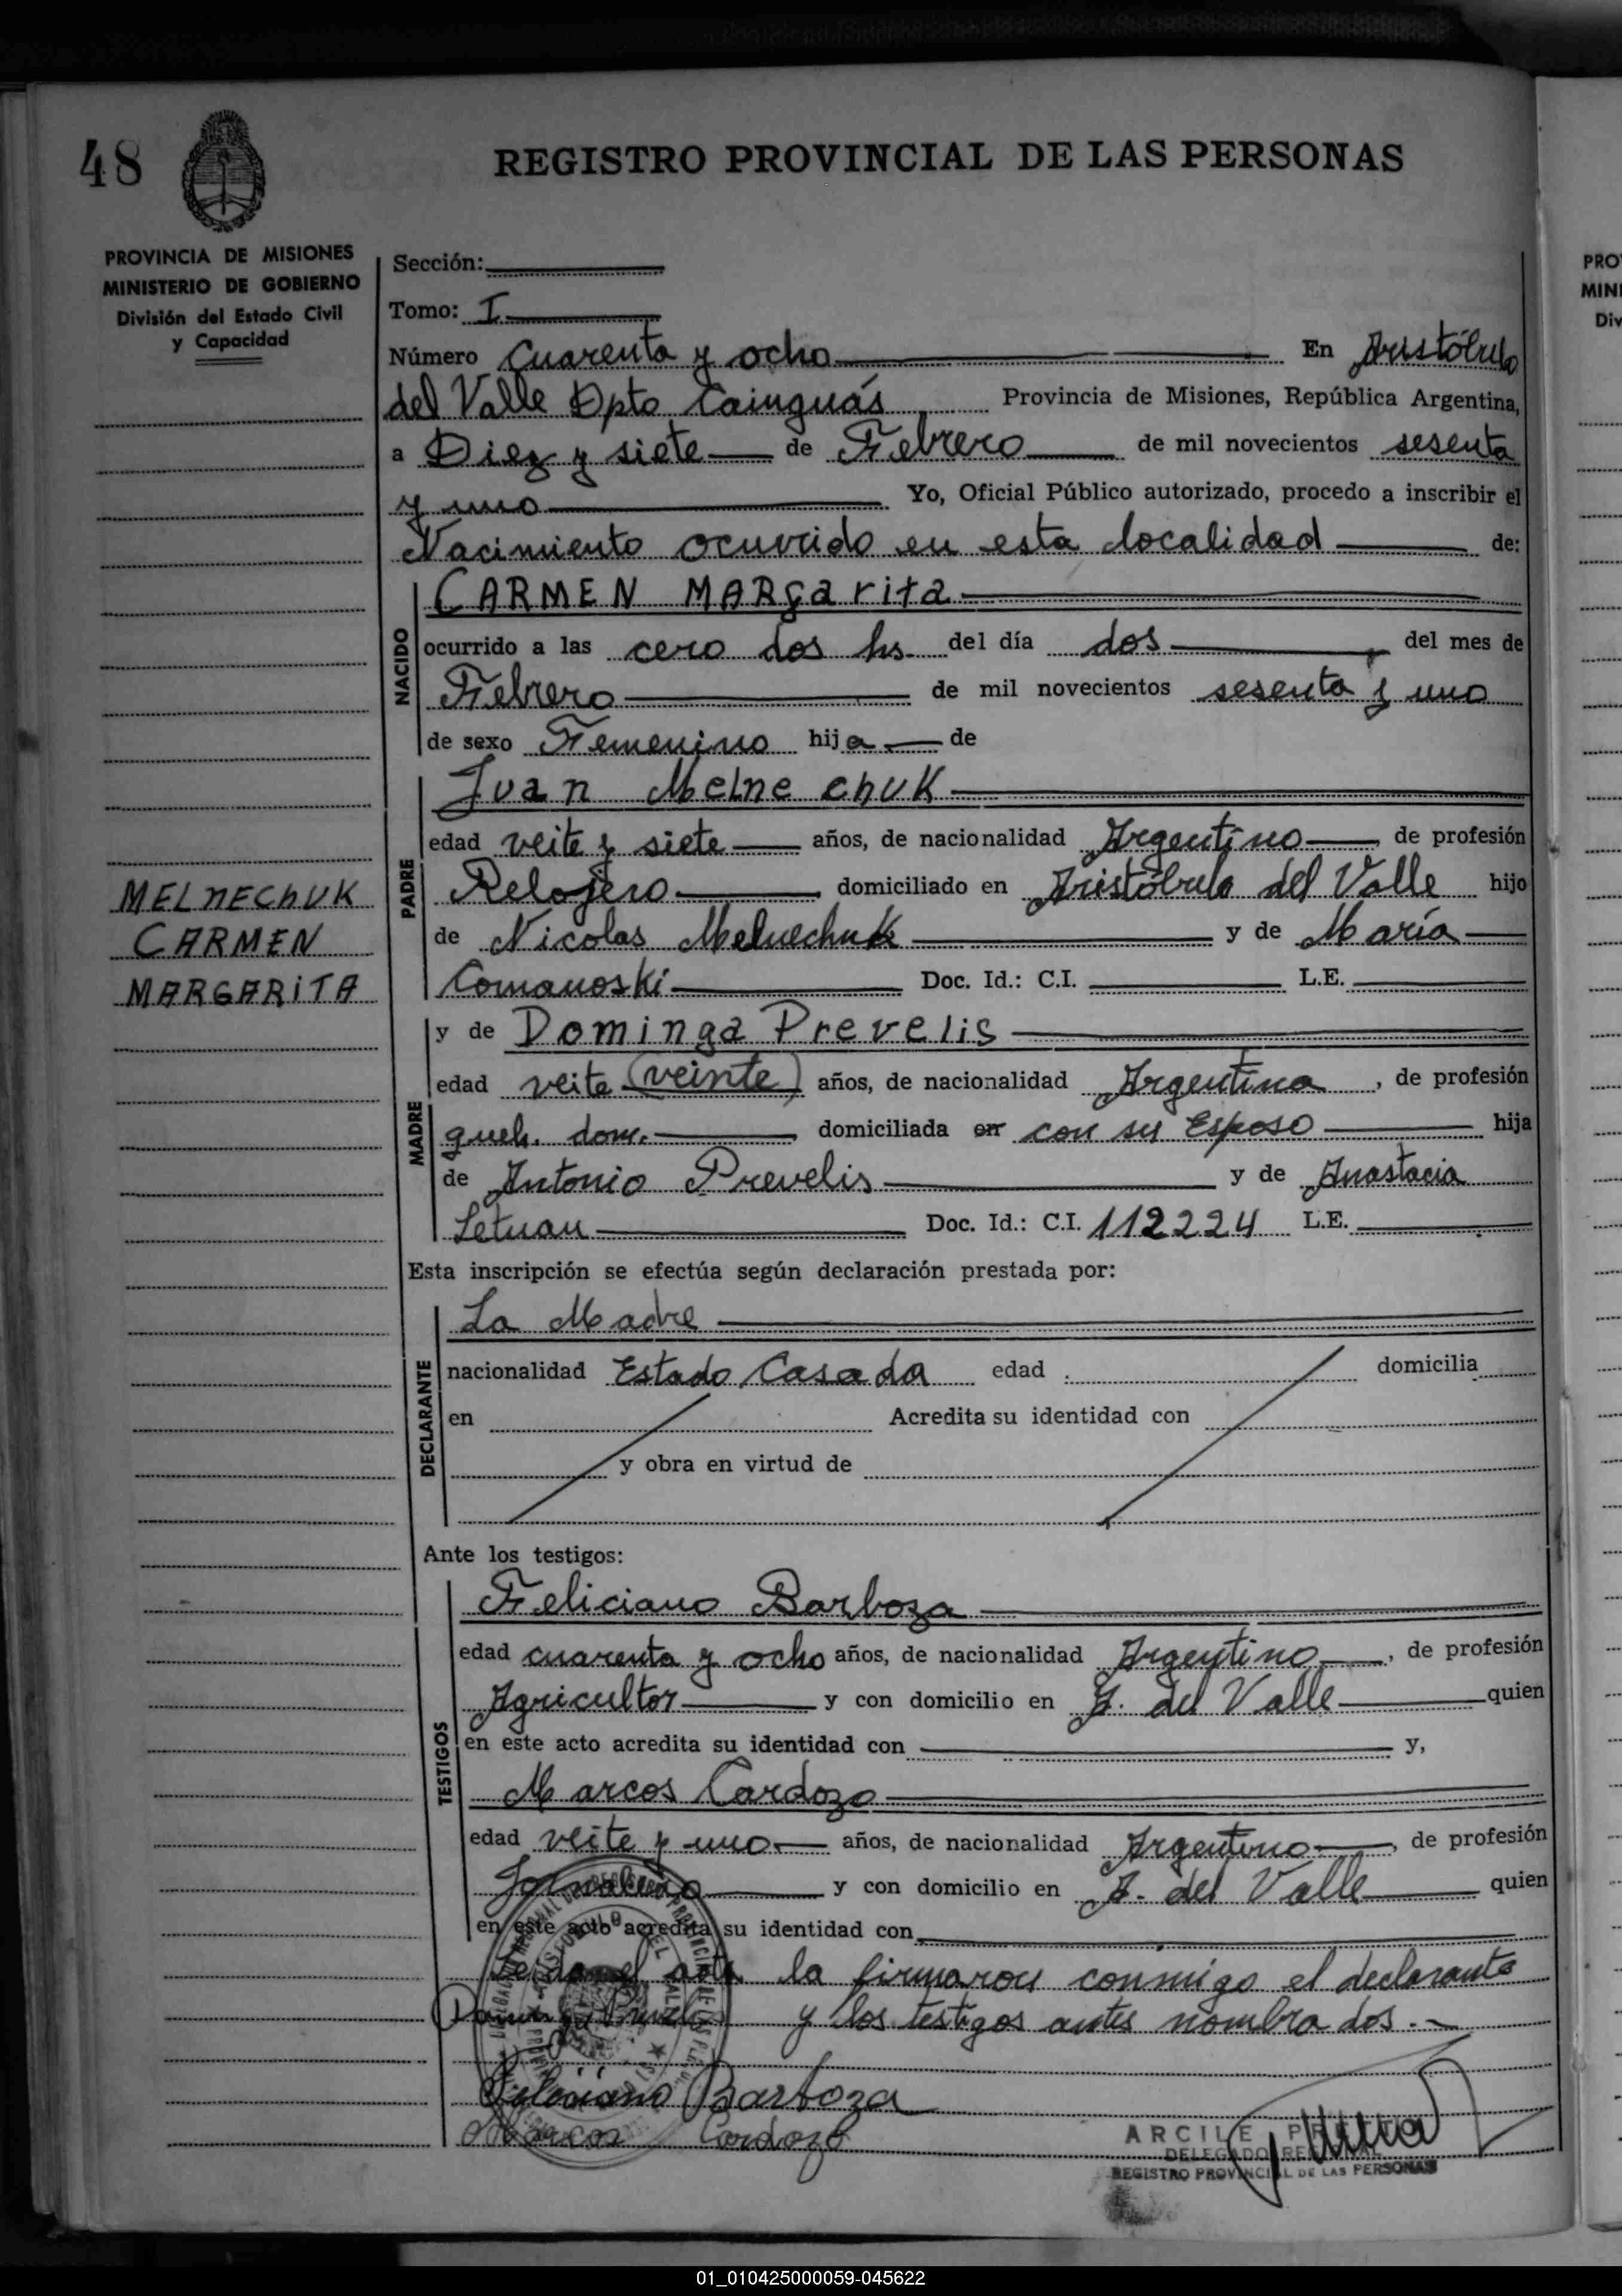 48
REGISTRO PROVINCIAL DE LAS PERSONAS
PROVINCIA DE MISIONES
MINISTERIO DE GOBIERNO
División del Estado Civil
y Capacidad
Sección:
Tomo: I
Número Cuarenta y ocho En Aristóbulo
del Valle Dpto Cainguás Provincia de Misiones, República Argentina,
a Diez y siete de Febrero de mil novecientos sesenta
y uno Yo, Oficial Público autorizado, procedo a inscribir el
Nacimiento ocurrido en esta localidad de:
NACIDO
CARMEN MARgarita
ocurrido a las cero dos hs. del día dos del mes de
Febrero de mil novecientos sesenta y uno
de sexo Femenino hija de
PADRE
Juan Melnechuk
edad veite y siete años, de nacionalidad Argentino, de profesión
Relojero domiciliado en Aristóbulo del Valle hijo
de Nicolas Melnechuk y de María
Comanoski Doc. Id.: C.I. L.E.
MELnEChUK
CARMEN
MARGARiTA
MADRE
y de Dominga Prevelis
edad veite (veinte) años, de nacionalidad Argentina, de profesión
queh. dom. domiciliada en con su Esposo hija
de Antonio Prevelis y de Anastacia
Letuan Doc. Id.: C.I. 112224 L.E.
Esta inscripción se efectúa según declaración prestada por:
DECLARANTE
La Madre
nacionalidad Estado Casada edad domicilia
en Acredita su identidad con
y obra en virtud de
Ante los testigos:
TESTIGOS
Feliciano Barboza
edad cuarenta y ocho años, de nacionalidad Argentino, de profesión
Agricultor y con domicilio en A. del Valle quien
en este acto acredita su identidad con y,
Marcos Cardozo
edad veite y uno años, de nacionalidad Argentino, de profesión
Jornalero y con domicilio en A. del Valle quien
en este acto acredita su identidad con
el acta la firmaron conmigo el declarante
y los testigos antes nombrados.-
Feliciano Barboza
Marcos Cardozo
ARCILE
DELEGADO REGIONAL
REGISTRO PROVINCIAL DE LAS PERSONAS
PRO
MINI
Div
01_010425000059-045622